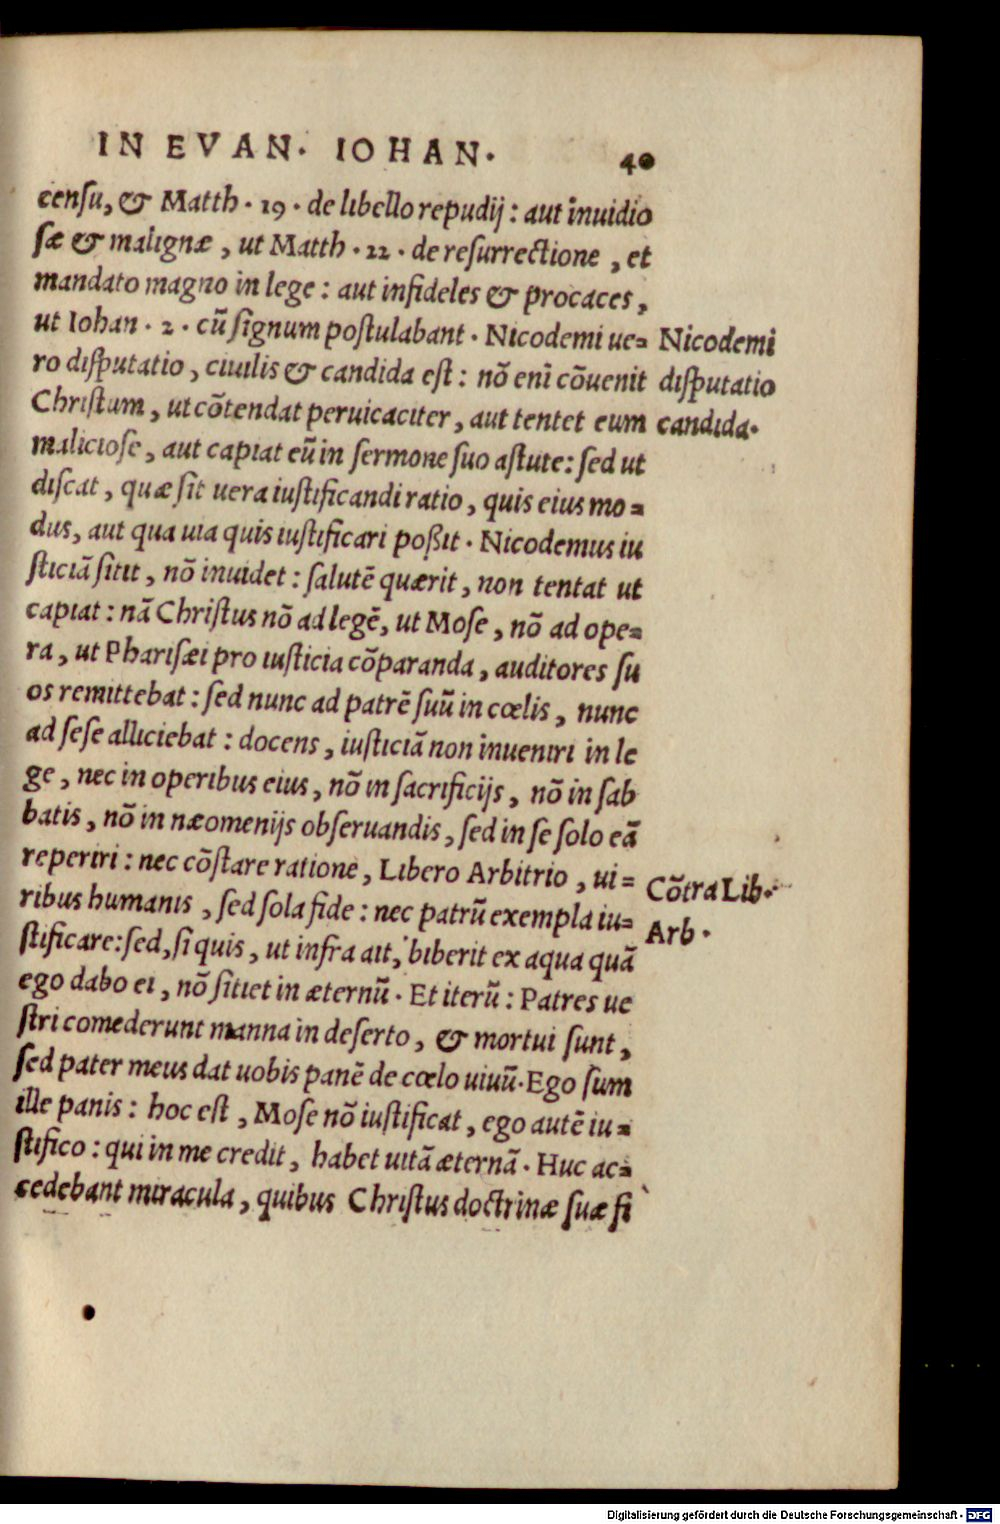 IN EVAN. IOHAN. 40
censu, & Matth. 19. de libello repudij: aut inuidio
sæ & malignæ, ut Matth. 22. de resurrectione, et
mandato magno in lege: aut infideles & procaces,
ut Iohan. 2. cũ signum postulabant. Nicodemi ue= Nicodemi
ro disputatio, ciuilis & candida est: nõ enĩ cõuenit disputatio
Christum, ut cõtendat peruicaciter, aut tentet eum candida.
maliciose, aut capiat eũ in sermone suo astute: sed ut
discat, quæ sit uera iustificandi ratio, quis eius mo=
dus, aut qua uia quis iustificari poßit. Nicodemus iu
sticiã sitit, nõ inuidet: salutẽ quærit, non tentat ut
capiat: nã Christus nõ ad legẽ, ut Mose, nõ ad ope=
ra, ut Pharisæi pro iusticia cõparanda, auditores su
os remittebat: sed nunc ad patrẽ suũ in cœlis, nunc
ad sese alliciebat: docens, iusticiã non inueniri in le
ge, nec in operibus eius, nõ in sacrificijs, nõ in sab
batis, nõ in næomenijs obseruandis, sed in se solo eã
reperiri: nec cõstare ratione, Libero Arbitrio, ui= Cõtra Lib.
ribus humanis, sed sola fide: nec patrũ exempla iu= Arb.
stificare: sed, si quis, ut infra ait, biberit ex aqua quã
ego dabo ei, nõ sitiet in æternũ. Et iterũ: Patres ue
stri comederunt manna in deserto, & mortui sunt,
sed pater meus dat uobis panẽ de cœlo uiuũ. Ego sum
ille panis: hoc est, Mose nõ iustificat, ego autẽ iu=
stifico: qui in me credit, habet uitã æternã. Huc ac=
cedebant miracula, quibus Christus doctrinæ suæ fi
Digitalisierung gefördert durch die Deutsche Forschungsgemeinschaft - DFG